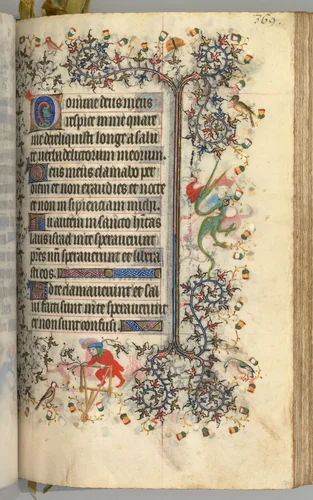 369.
Domine deus meus
respice in me quare
me dereliquisti longe a salu
te mea uerba delictorum meorum.
Deus meus clamabo per
diem et non exaudies et nocte
et non in sipienciam michi.
Tu autem in sancto hitas
laus israel in te sperauerunt
pres nri sperauerunt et libera
sti eos.
Ad te clamauerunt et sal
ui facti sunt in te sperauerunt
et non sunt confusi.